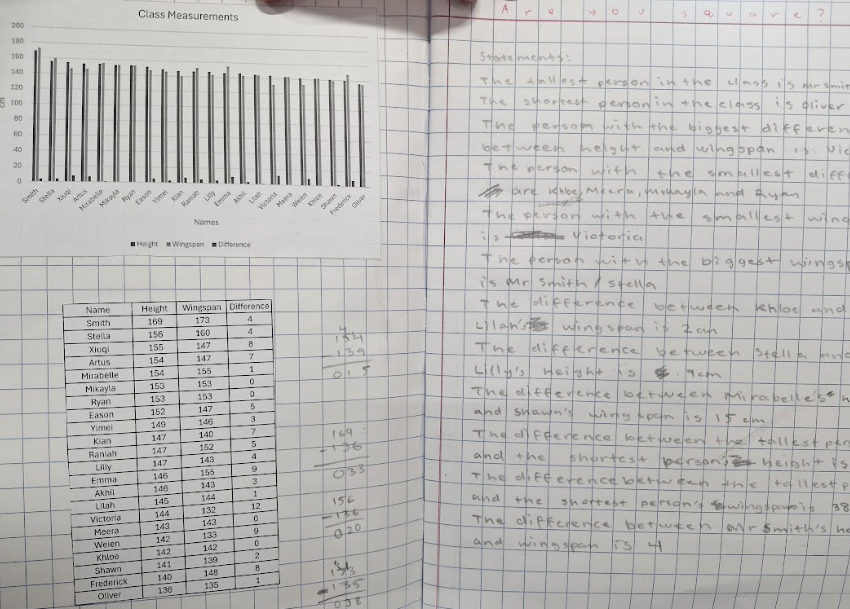 Class Measurements
200
180
160
140
120
100
80
60
40
20
0
cm
Smith Stella Xiuqi Artus Mirabelle Mikayla Ryan Eason Yimei Kian Raniah Lilly Emma Akhil Lilah Victoria Meera Weien Khloe Shawn Frederick Oliver
Names
Height Wingspan Difference
Name Height Wingspan Difference
Smith 169 173 4
Stella 156 160 4
Xiuqi 155 147 8
Artus 154 147 7
Mirabelle 154 155 1
Mikayla 153 153 0
Ryan 153 153 0
Eason 152 147 5
Yimei 149 146 3
Kian 147 140 7
Raniah 147 152 5
Lilly 147 143 4
Emma 146 155 9
Akhil 146 143 3
Lilah 145 144 1
Victoria 144 132 12
Meera 143 143 0
Weien 142 133 9
Khloe 142 142 0
Shawn 141 139 2
Frederick 140 148 8
Oliver 136 135 1
4
154
- 139
015
169
- 136
033
156
- 136
020
173
- 135
038
Are you square?
Statements:
The tallest person in the class is mr smit
The shortest person in the class is Oliver
The person with the biggest differen
between height and wingspan is: Vic
The person with the smallest diff
are Khloe, Meera, Mikayla and Ryan
The person with the smallest wing
is Victoria
The person with the biggest wingsp
is Mr Smith / Stella
The difference between Khloe and
Lilah's wingspan is 2cm
The difference between Stella and
Lilly's height is 9cm
The difference between Mirabelle's h
and Shawn's wingspan is 15 cm
The difference between the tallest per
and the shortest person's height is
The difference between the tallest p
and the shortest person's wingspan is 38
The difference between Mr Smith's he
and wingspan is 4